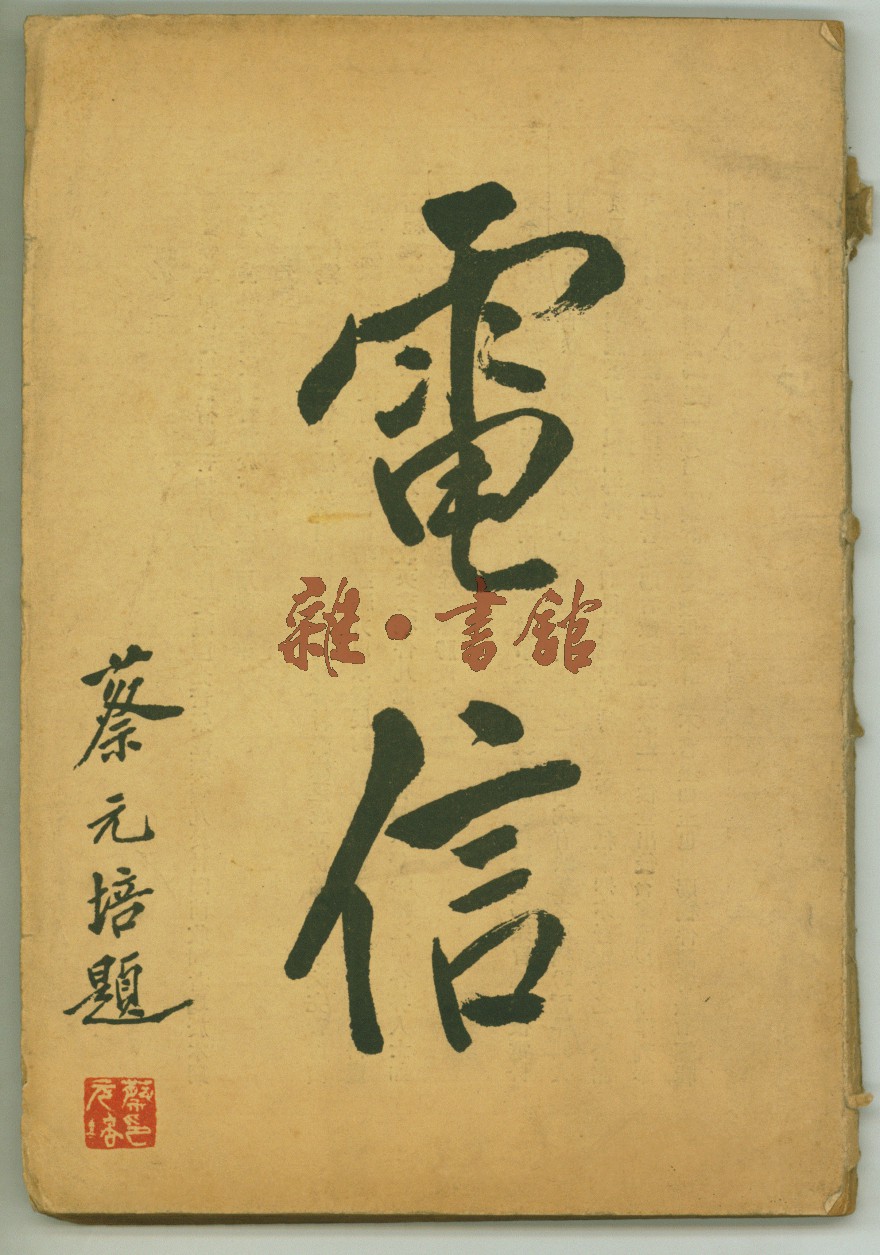 電信
雜·書館
蔡元培題
蔡印元培